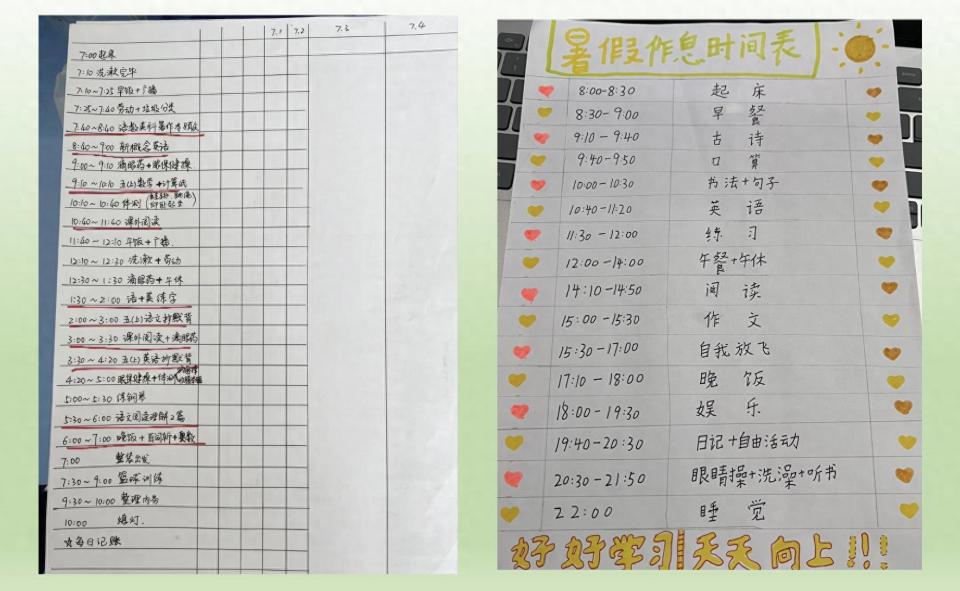 7.1 7.2 7.3 7.4
7:00 起床
7:10 洗漱完毕
7:10~7:25 早饭+广播
7:25~7:40 劳动+垃圾分类
7:40~8:40 语数英科暑作本
8:40~9:00 新概念英语
9:00~9:10 滴眼药+眼保健操
9:10~10:10 五(上)数学+计算纸
10:10~10:40 体测(
10:40~11:40 课外阅读
11:40~12:10 午饭+广播
12:10~12:30 洗漱+劳动
12:30~1:30 滴眼药+午休
1:30~2:00 语+英练字
2:00~3:00 五(上)语文抄默背
3:00~3:30 课外阅读+滴眼药
3:30~4:20 五(上)英语抄默背
4:20~5:00 眼保健操+体测
5:00~5:30 练钢琴
5:30~6:00 语文阅读理解2篇
6:00~7:00 晚饭+新闻+奥数
7:00 整装出发
7:30~9:00 篮球训练
9:30~10:00 整理内务
10:00 熄灯.
☆每日记账
暑假作息时间表
8:00-8:30 起床
8:30-9:00 早餐
9:10-9:40 古诗
9:40-9:50 口算
10:00-10:30 书法+句子
10:40-11:20 英语
11:30-12:00 练习
12:00-14:00 午餐+午休
14:10-14:50 阅读
15:00-15:30 作文
15:30-17:00 自我放飞
17:10-18:00 晚饭
18:00-19:30 娱乐
19:40-20:30 日记+自由活动
20:30-21:50 眼睛操+洗澡+听书
22:00 睡觉
好好学习 天天向上!!!